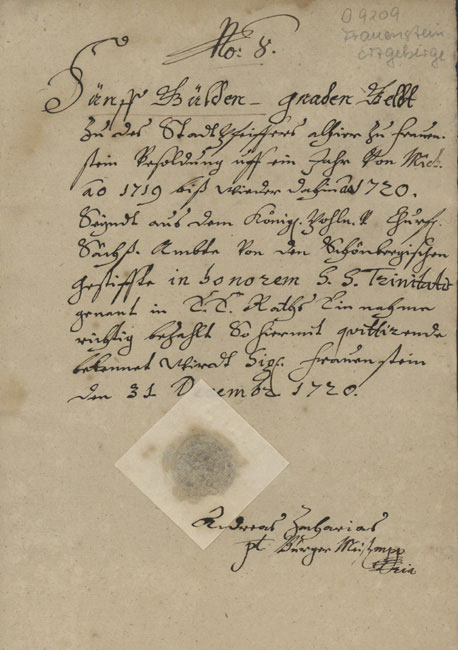 No: 8.
09209
Frauenstein
Erzgebirge
Fünff Gülden gnaden Geldt
Zu des Stadt Pfeiffers alhier Zu Frauen-
stein Besoldung uff ein Jahr Von Mich.
ao 1719 biß wieder dahin ao 1720.
Seyndt aus dem Königl. Pohln. Churf.
Sächß. Ambte Von den Schönbergischen
gestiffte in honorem S. S. Trinitatis
genant in E. E. Raths Einnahme
richtig bezahlt So hiermit quittirende
bekennet Wirdt Sigl. Frauenstein
den 31 Decembr 1720.
Andreas Zacharias
pt. Bürger Meister mpp